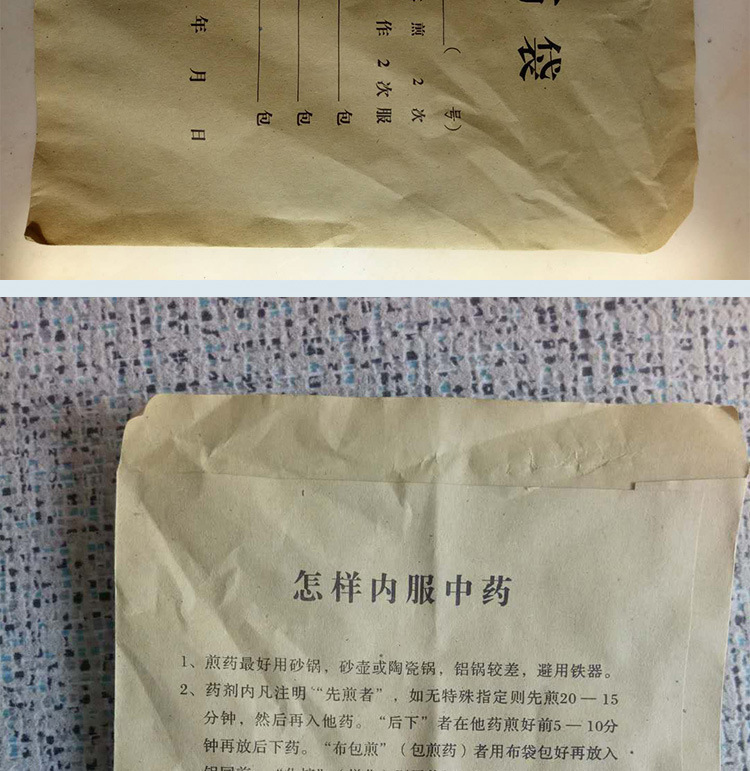 袋
（ 号）
煎 2 次
作 2 次服
包
包
包
年 月 日
怎样内服中药
1、煎药最好用砂锅，砂壶或陶瓷锅，铝锅较差，避用铁器。
2、药剂内凡注明“先煎者”，如无特殊指定则先煎20－15
分钟，然后再入他药。“后下”者在他药煎好前5－10分
钟再放后下药。“布包煎”（包煎药）者用布袋包好再放入